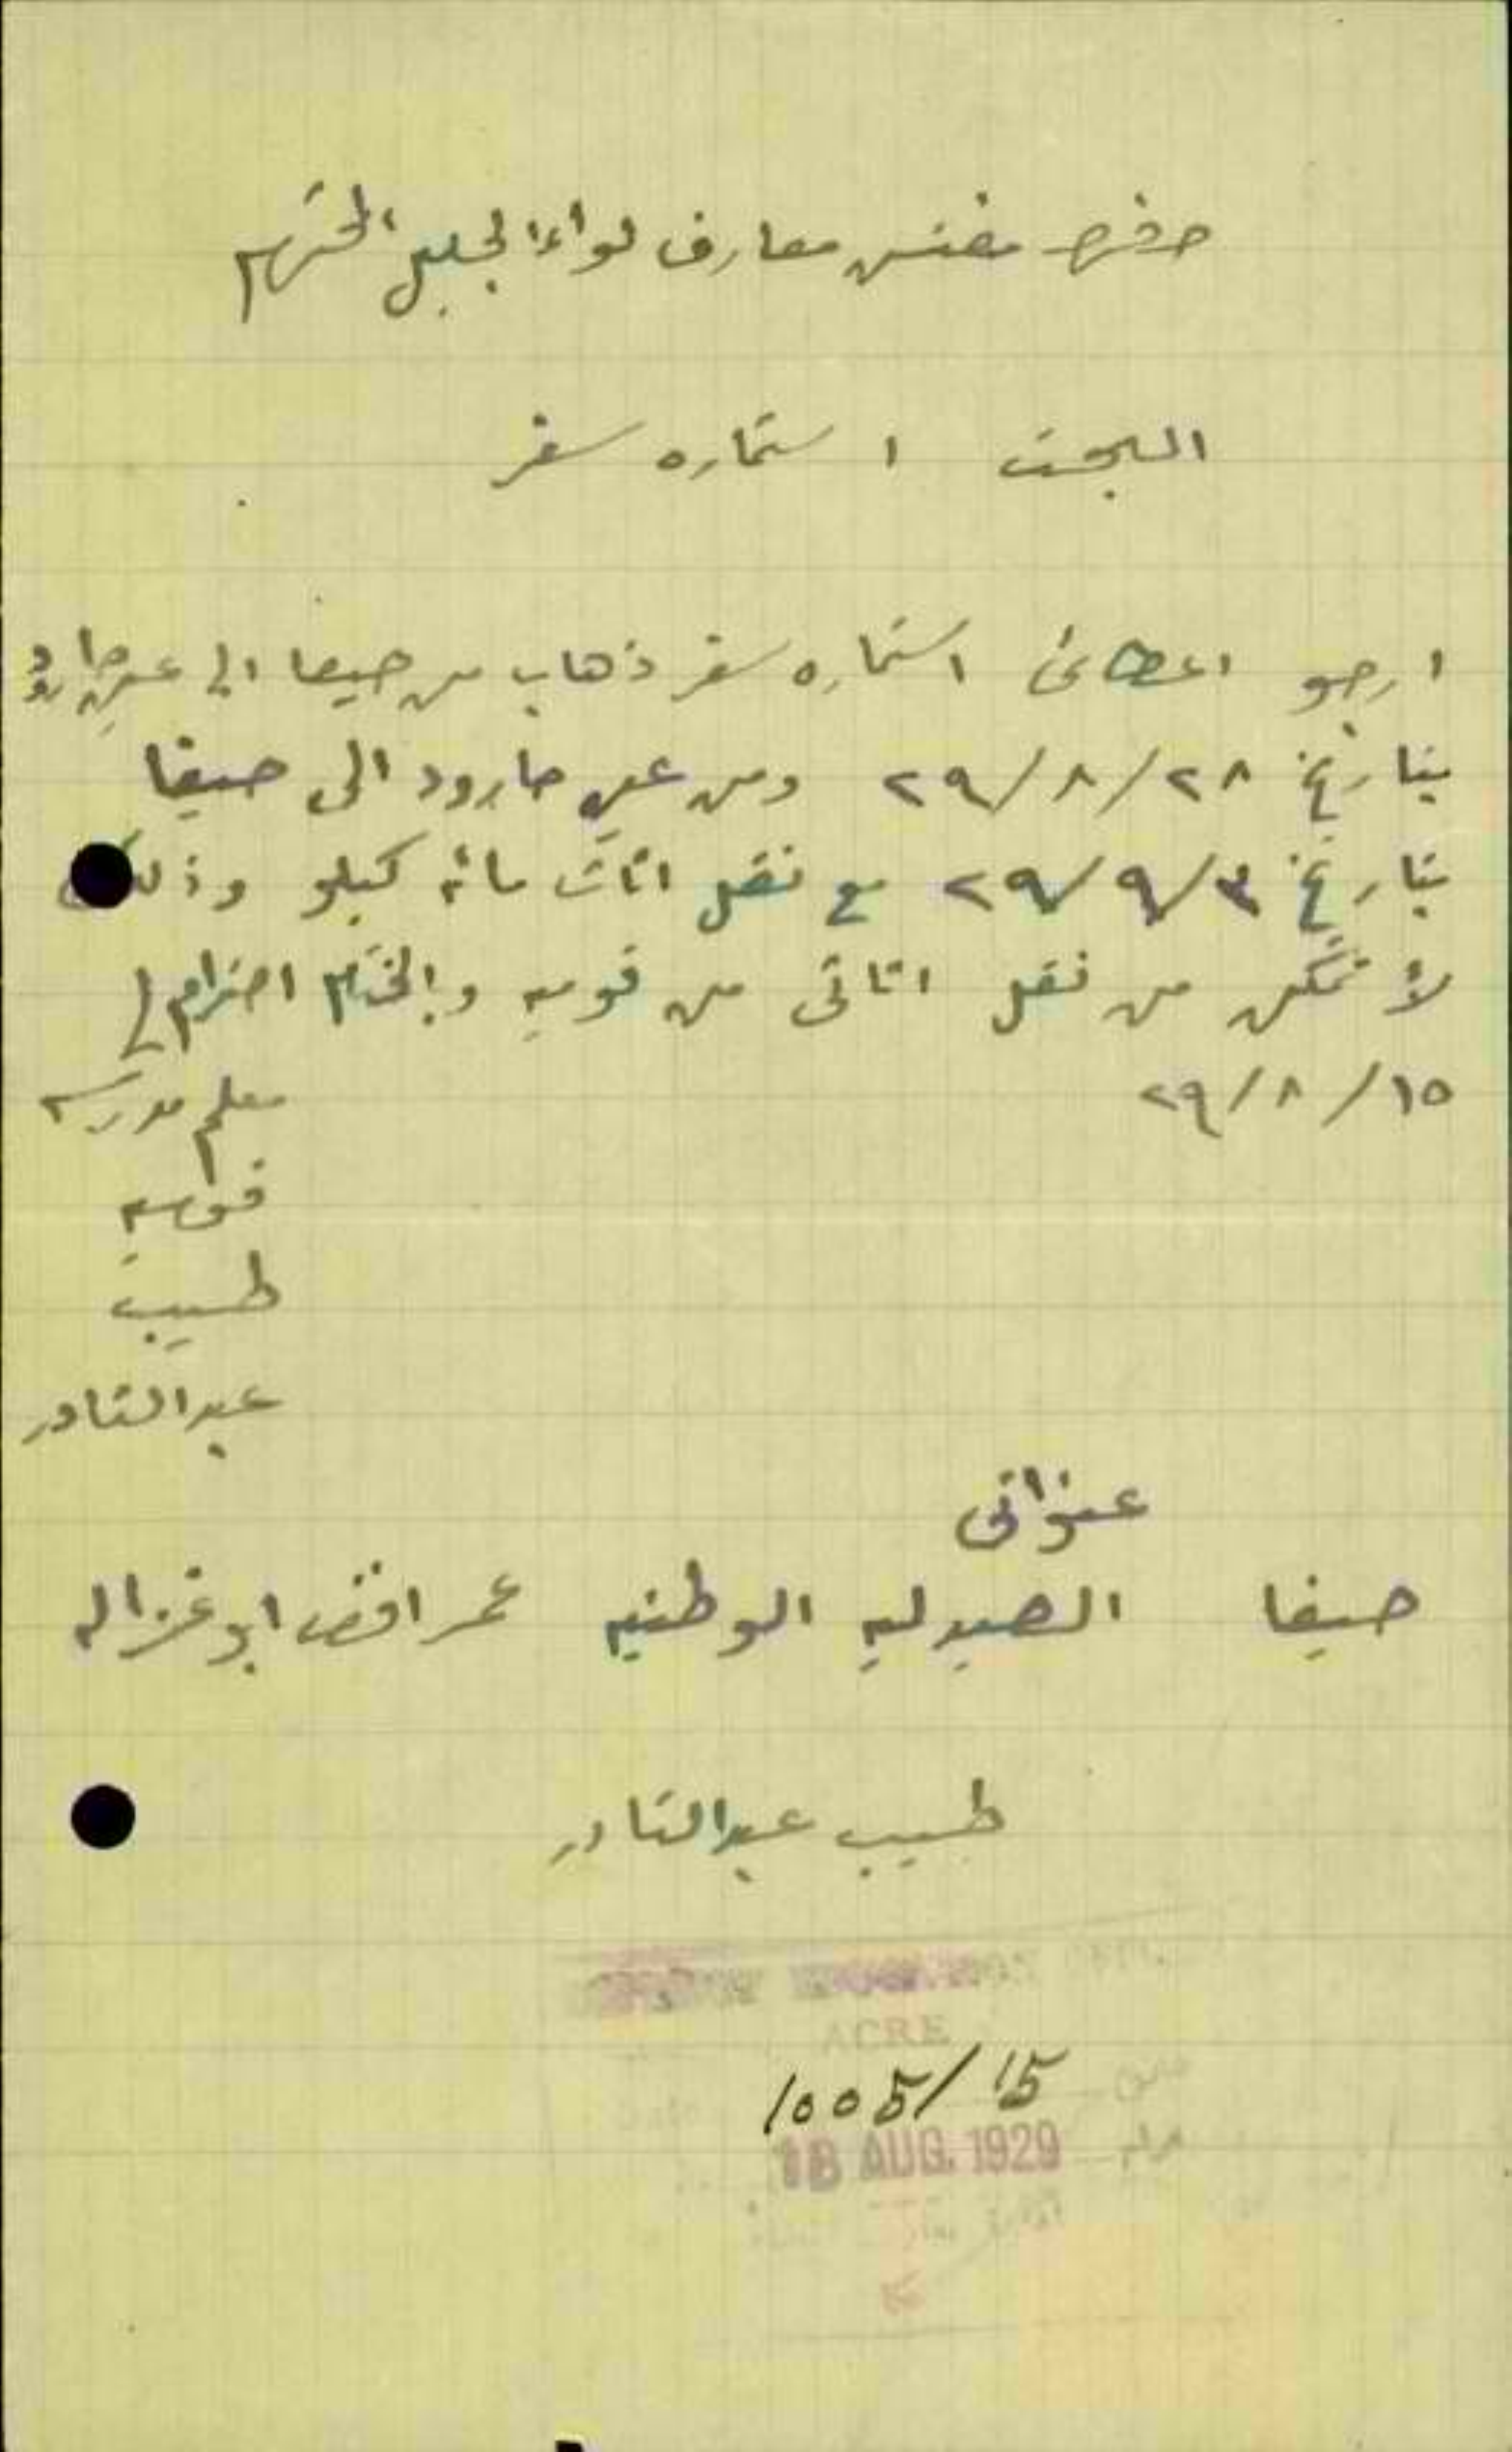 حضرة مفتش معارف لواء الجليل المحترم
البحث استماره سفر
ارجو اعطائى استماره سفر ذهاب من حيفا الى عين جارود
بتاريخ ٢٨/٨/٢٩ ومن عين جارود الى حيفا
بتاريخ ٣/٩/٢٩ مع نقل اثاث مائة كيلو وذلك
لأتمكن من نقل اثاثى من قوميه وبالختام احترامى
١٥/٨/٢٩
معلم مدرسه
قوميه
طبيب
عبدالقادر
عنوانى
حيفا الصيدليه الوطنيه عمر افندى ابو غزاله
طبيب عبدالقادر
ACRE
1005/15
18 AUG. 1929